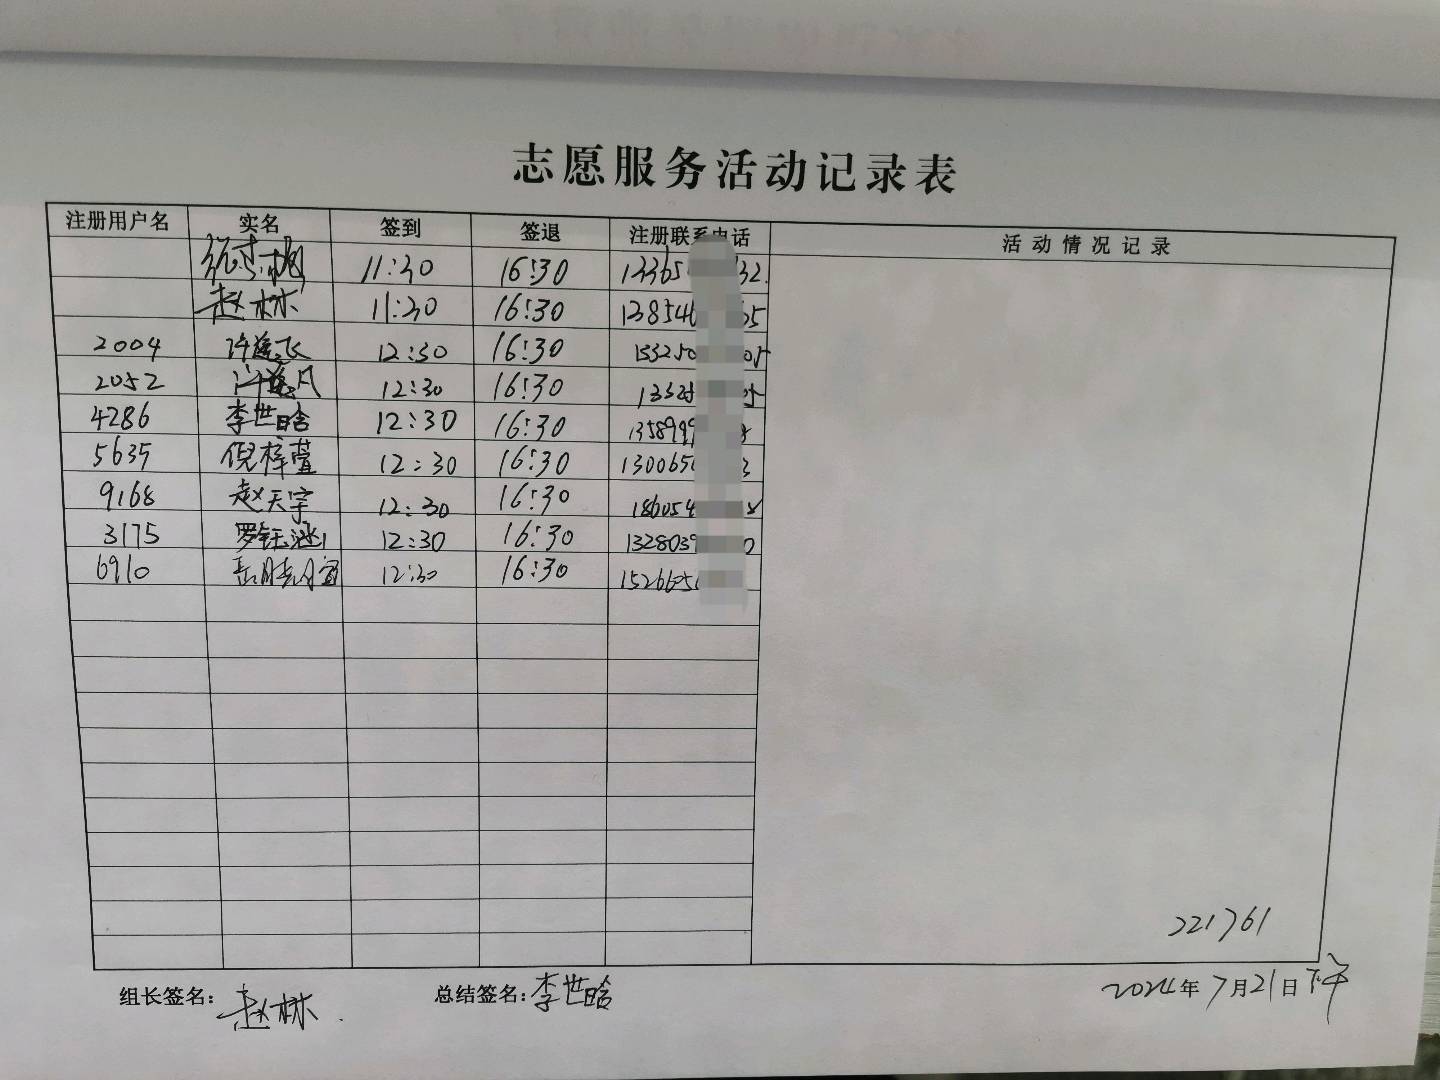 志愿服务活动记录表
注册用户名 实名 签到 签退 注册联系电话 活动情况记录
11:30 16:30 13365 32
赵林 11:30 16:30 138540 65
2004 许逸飞 12:30 16:30 153250 05
2052 许逸凡 12:30 16:30 05
4286 李世晗 12:30 16:30 1358999
5635 倪梓萱 12:30 16:30 1300650 3
9168 赵天宇 12:30 16:30 186054
3175 罗钰涵 12:30 16:30 1328039 0
6910 12:30 16:30 1526605
221761
组长签名: 赵林 总结签名: 李世晗 2024年7月21日下午